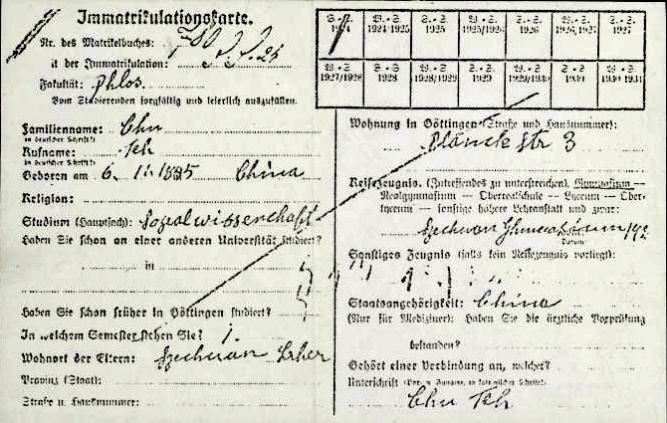 Immatrikulationskarte.
Nr. des Matrikelbuches:
it der Immatrikulation:
Fakultät: phlos.
Vom Studierenden sorgfältig und leserlich auszufüllen.
Familienname: Chu
(in deutscher Schrift)
Rufname: Teh
(in deutscher Schrift)
Geboren am 6. China
Religion:
Studium (Hauptfach): Sozialwissenschaft
Haben Sie schon an einer anderen Universität studiert?
in
Haben Sie schon früher in Göttingen studiert?
In welchem Semester stehen Sie? 1
Wohnort der Eltern: Szechuan
Provinz (Staat):
Straße u. Hausnummer:
S.-S. 1924 W.-S. 1924/1925 S.-S. 1925 W.-S. 1925/1926 S.-S. 1926 W.-S. 1926/1927 S.-S. 1927
W.-S. 1927/1928 S.-S. 1928 W.-S. 1928/1929 S.-S. 1929 W.-S. 1929/1930 S.-S. 1930 W.-S. 1930/1931
Wohnung in Göttingen (Straße und Hausnummer):
Planckstr 3
Reifezeugnis. (Zutreffendes zu unterstreichen). Gymnasium —
Realgymnasium — Oberrealschule — Lyceum — Ober-
lyceum — sonstige höhere Lehranstalt und zwar:
Szechuan
Datum:
Sonstiges Zeugnis (falls kein Reifezeugnis vorliegt):
Staatsangehörigkeit: China
(Nur für Mediziner): Haben Sie die ärztliche Vorprüfung
bestanden?
Gehört einer Verbindung an, welcher?
Unterschrift
Chu Teh